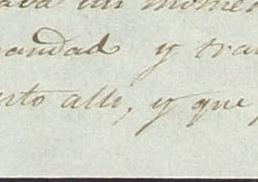 un momen
andad y tra
rto alli, y que